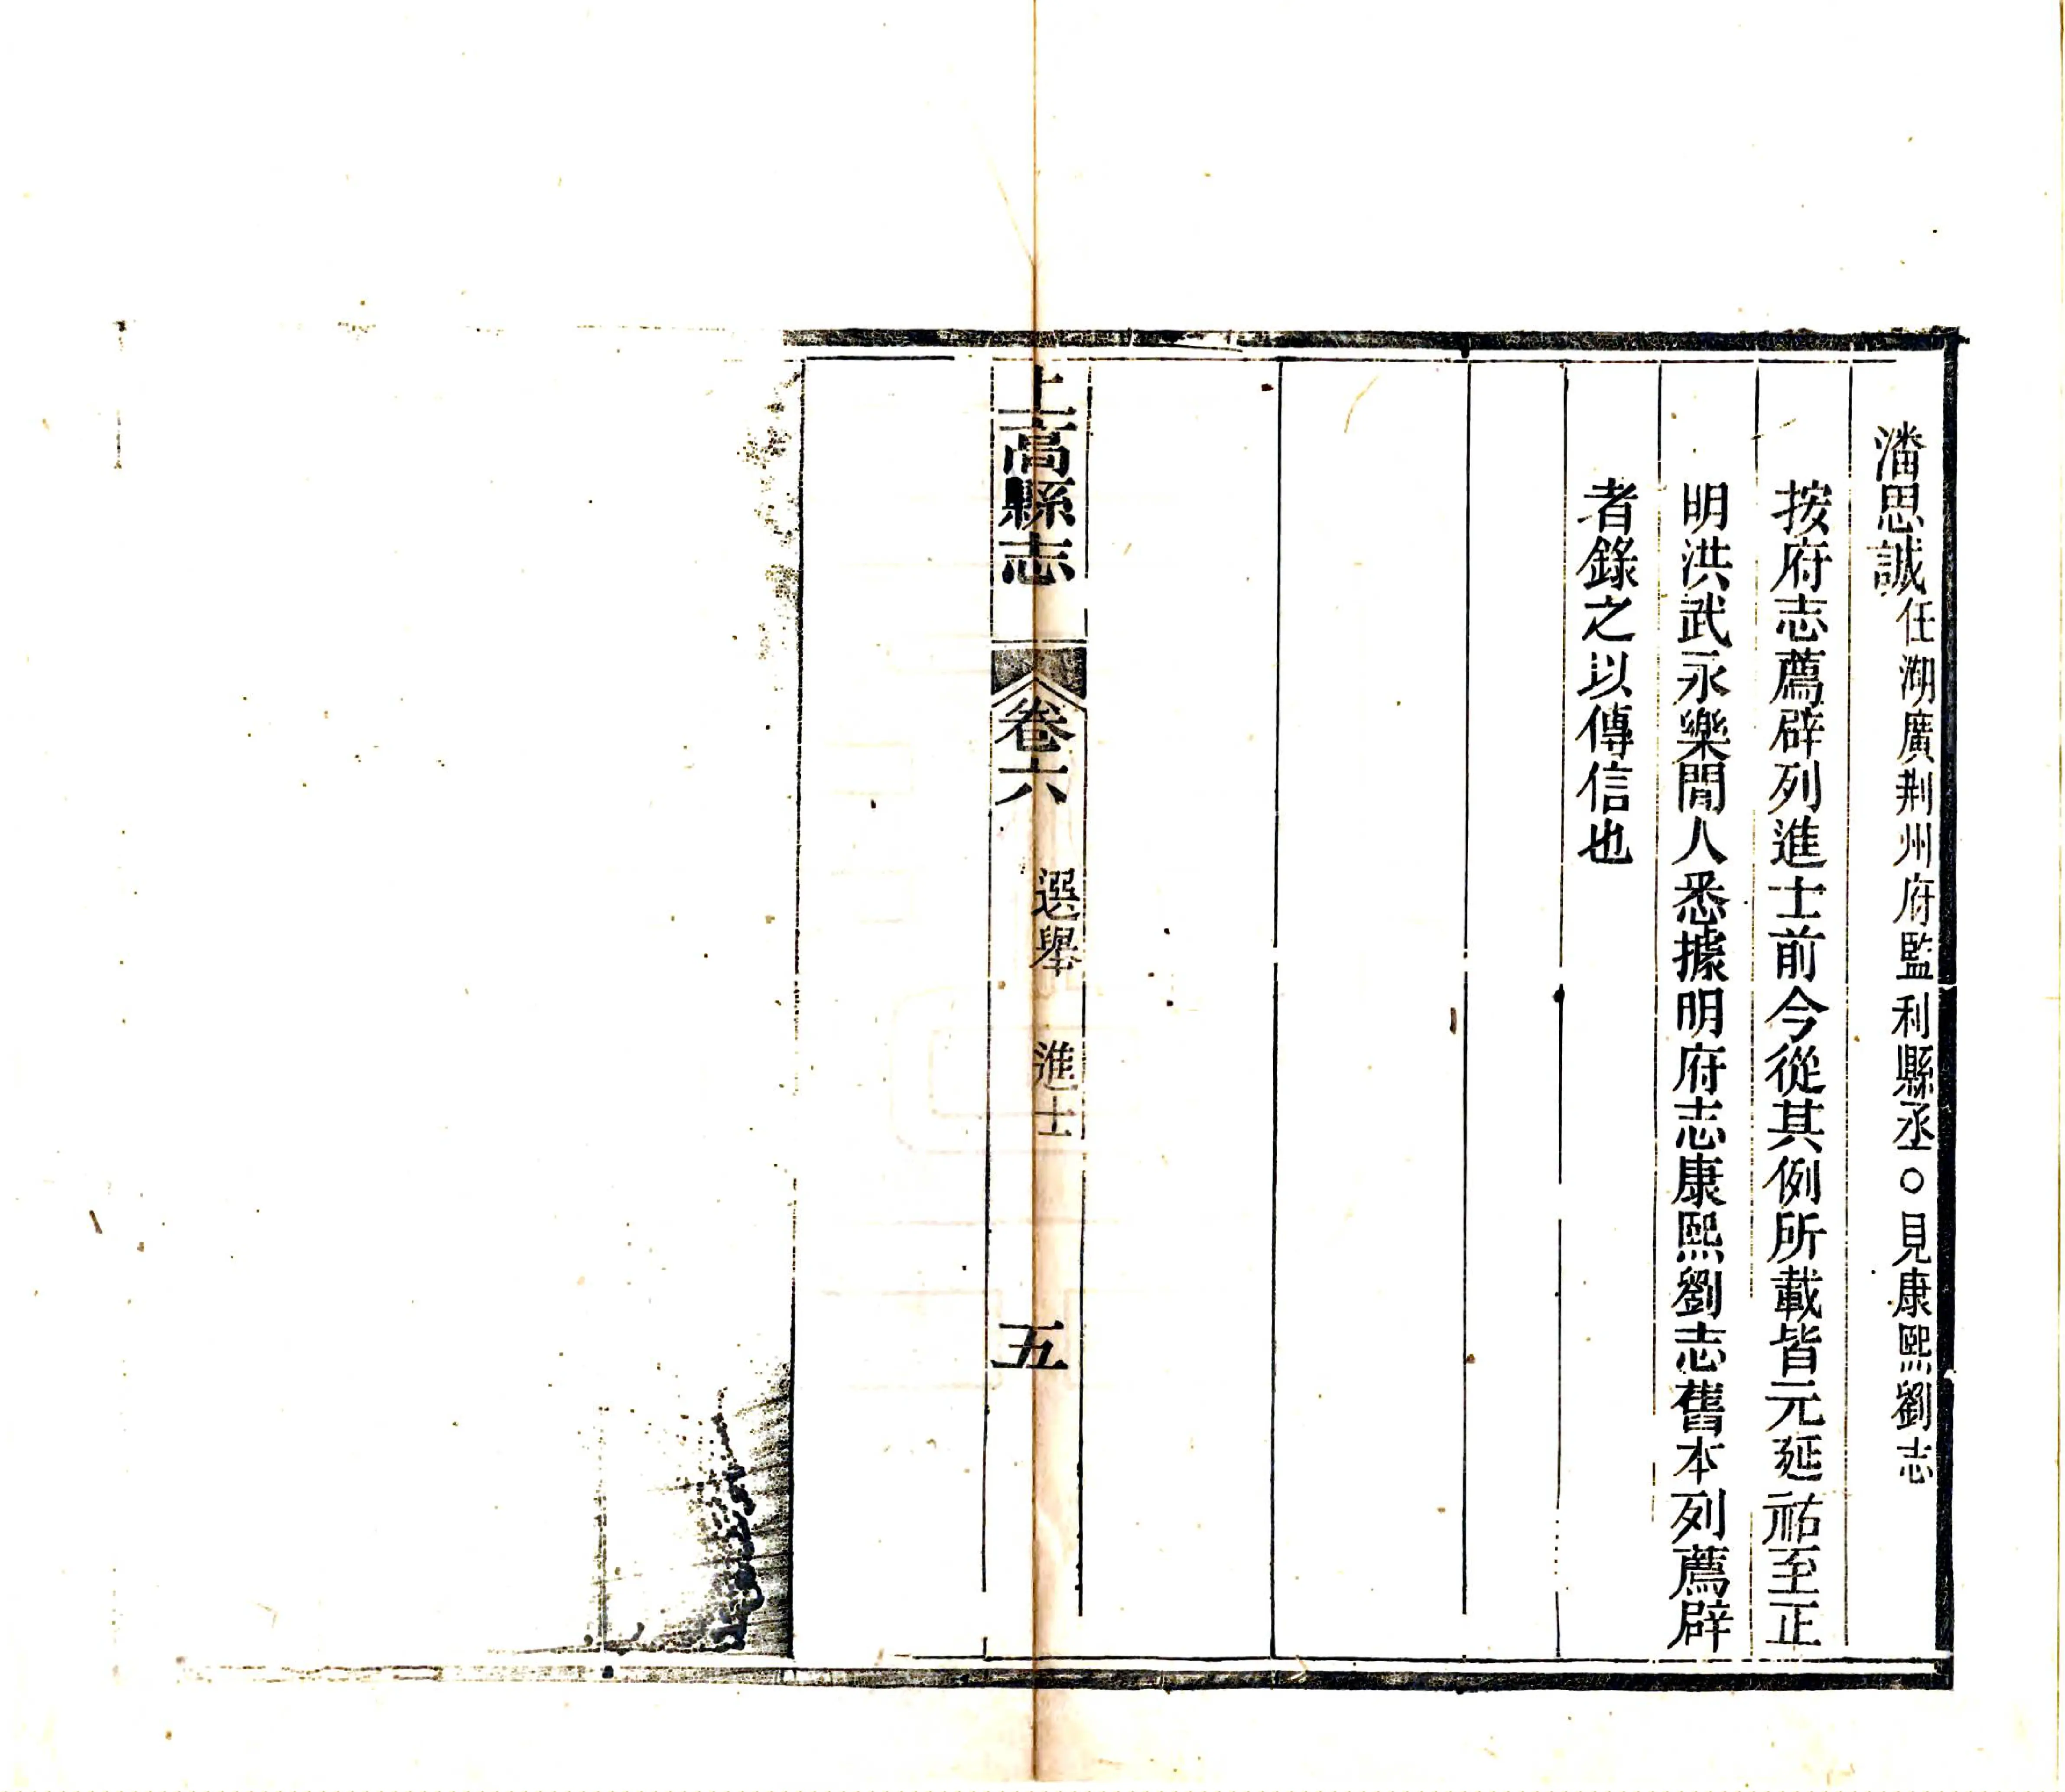 潘思誠任湖廣荆州府監利縣丞○見康熙劉志
按府志薦辟列進士前今從其例所載皆元延祐至正
明洪武永樂間人悉據明府志康熙劉志舊本列薦辟
者錄之以傳信也
上高縣志 卷六 選舉 進士 五